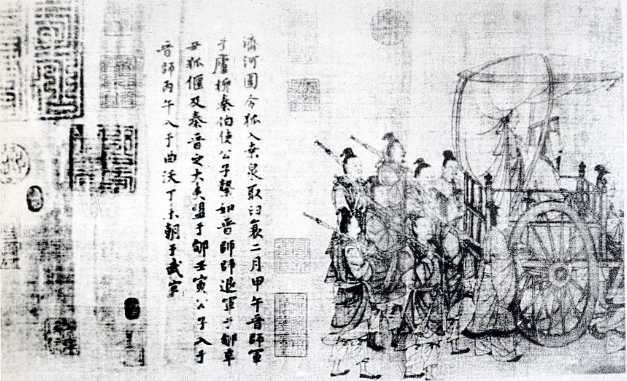 濟河圍令狐入桑泉取臼衰二月甲午晉師軍
于廬柳秦伯使公子縶如晉師師退軍于郇辛
丑狐偃及秦晉之大夫盟于郇壬寅公子入于
晉師丙午入于曲沃丁未朝于武宮